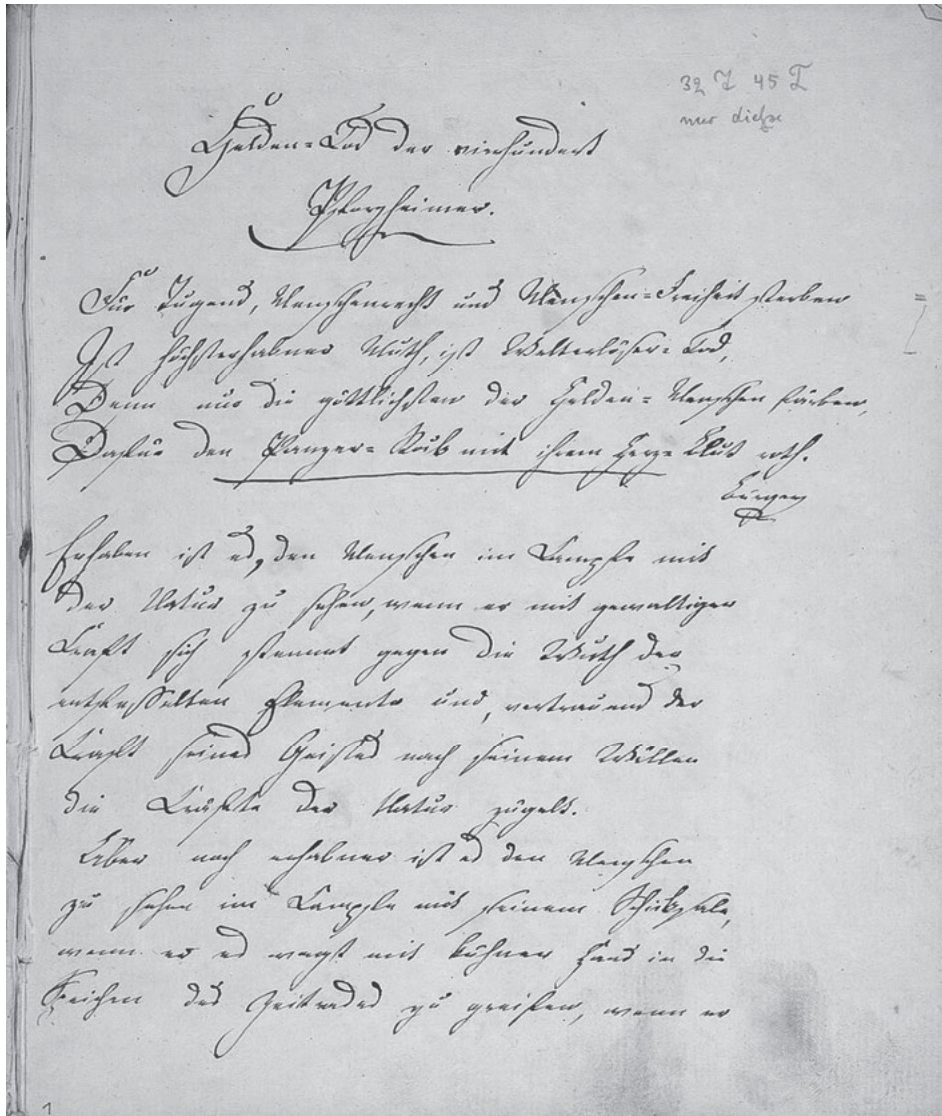 32 J 45 I
nur diese
Helden-Tod der vierhundert
Pforzheimer.
Für Tugend, Menschenrecht und Menschen-Freiheit sterben
Ist höchsterhabner Muth, ist Welterlöser-Tod,
Denn nur die göttlichsten der Helden-Menschen färben,
Dafür den Panzer-Rock mit ihrem Herz-Blut roth.
Bürger
Erhaben ist es, den Menschen im Kampfe mit
der Natur zu sehen, wenn er mit gewaltiger
Kraft sich stemmt gegen die Wuth der
entfesselten Elemente und, vertrauend der
Kraft seines Geistes nach seinem Willen
die Kräfte der Natur zügelt.
Aber noch erhabner ist es den Menschen
zu sehen im Kampfe mit seinem Schicksale,
wenn er es wagt mit kühner Hand in die
Speichen des Zeitrades zu greifen, wenn er
1